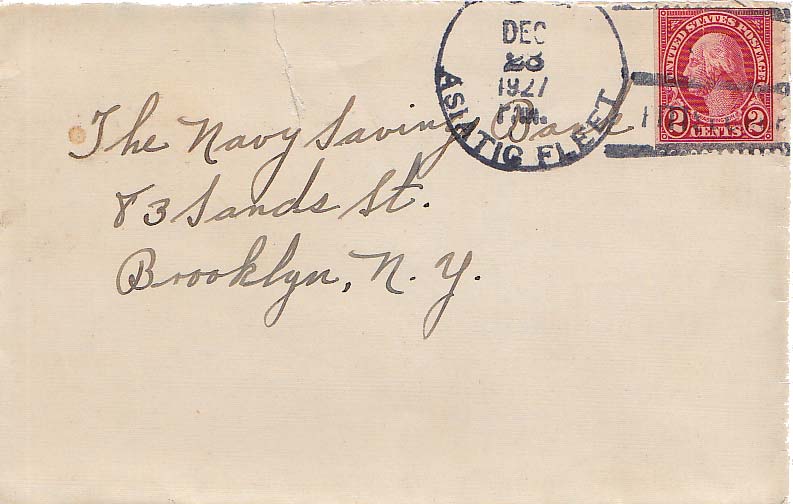 DEC
28
1927
P.M.
ASIATIC FLEET
UNITED STATES POSTAGE
2 CENTS 2
The Navy Saving Bank
83 Sands St.
Brooklyn, N. Y.